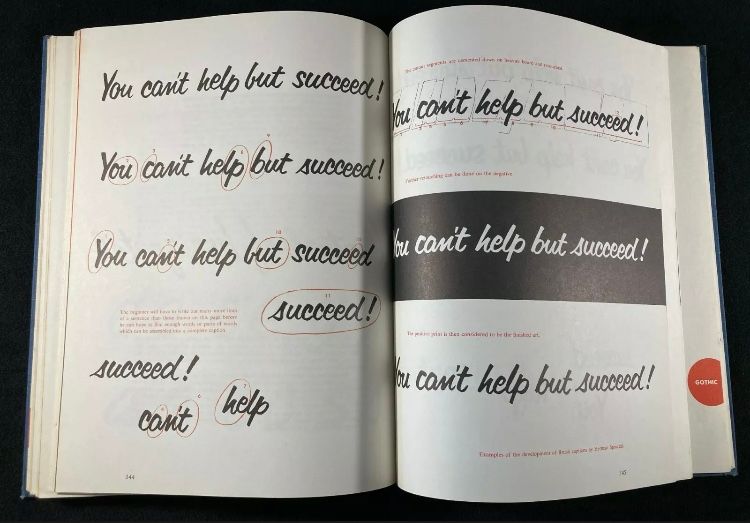 You can't help but succeed!
You can't help but succeed!
9
You can't help but succeed
10
The beginner will have to write out many more lines
of a sentence than those shown on this page before
he can hope to find enough words or parts of words
which can be assembled into a complete caption.
11
succeed!
succeed!
can't help
144
The various segments are cemented down on heavy board and
You can't help but succeed!
Further retouching can be done on the negative.
You can't help but succeed!
The positive print is then considered to be the finished art.
You can't help but succeed!
Examples of the development of Brush caption by
145
GOTHIC